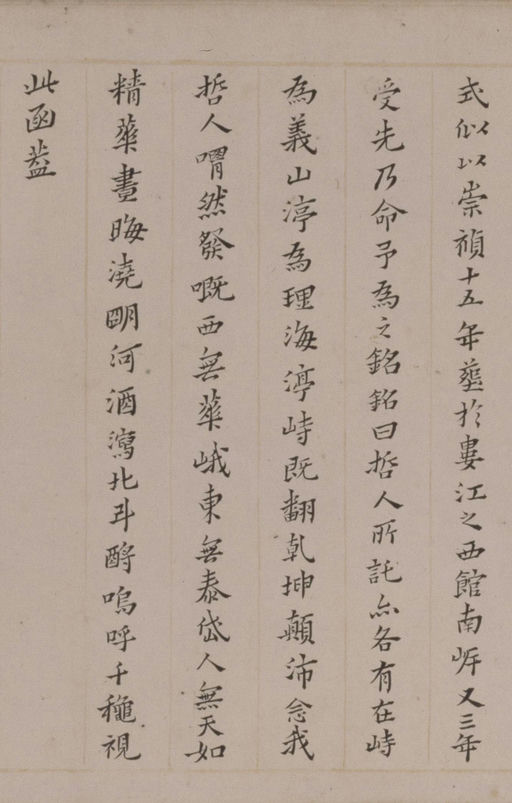 式似以崇禎十五年塟於婁江之西館南岸又三年
受先乃命予為之銘銘曰哲人所託亦各有在峙
為義山渟為理海渟峙既翻乾坤顛沛念我
哲人喟然發嘅西無華峨東無泰岱人無天如
精華晝晦澆朙河酒瀉北斗酹嗚呼千龝視
此函葢